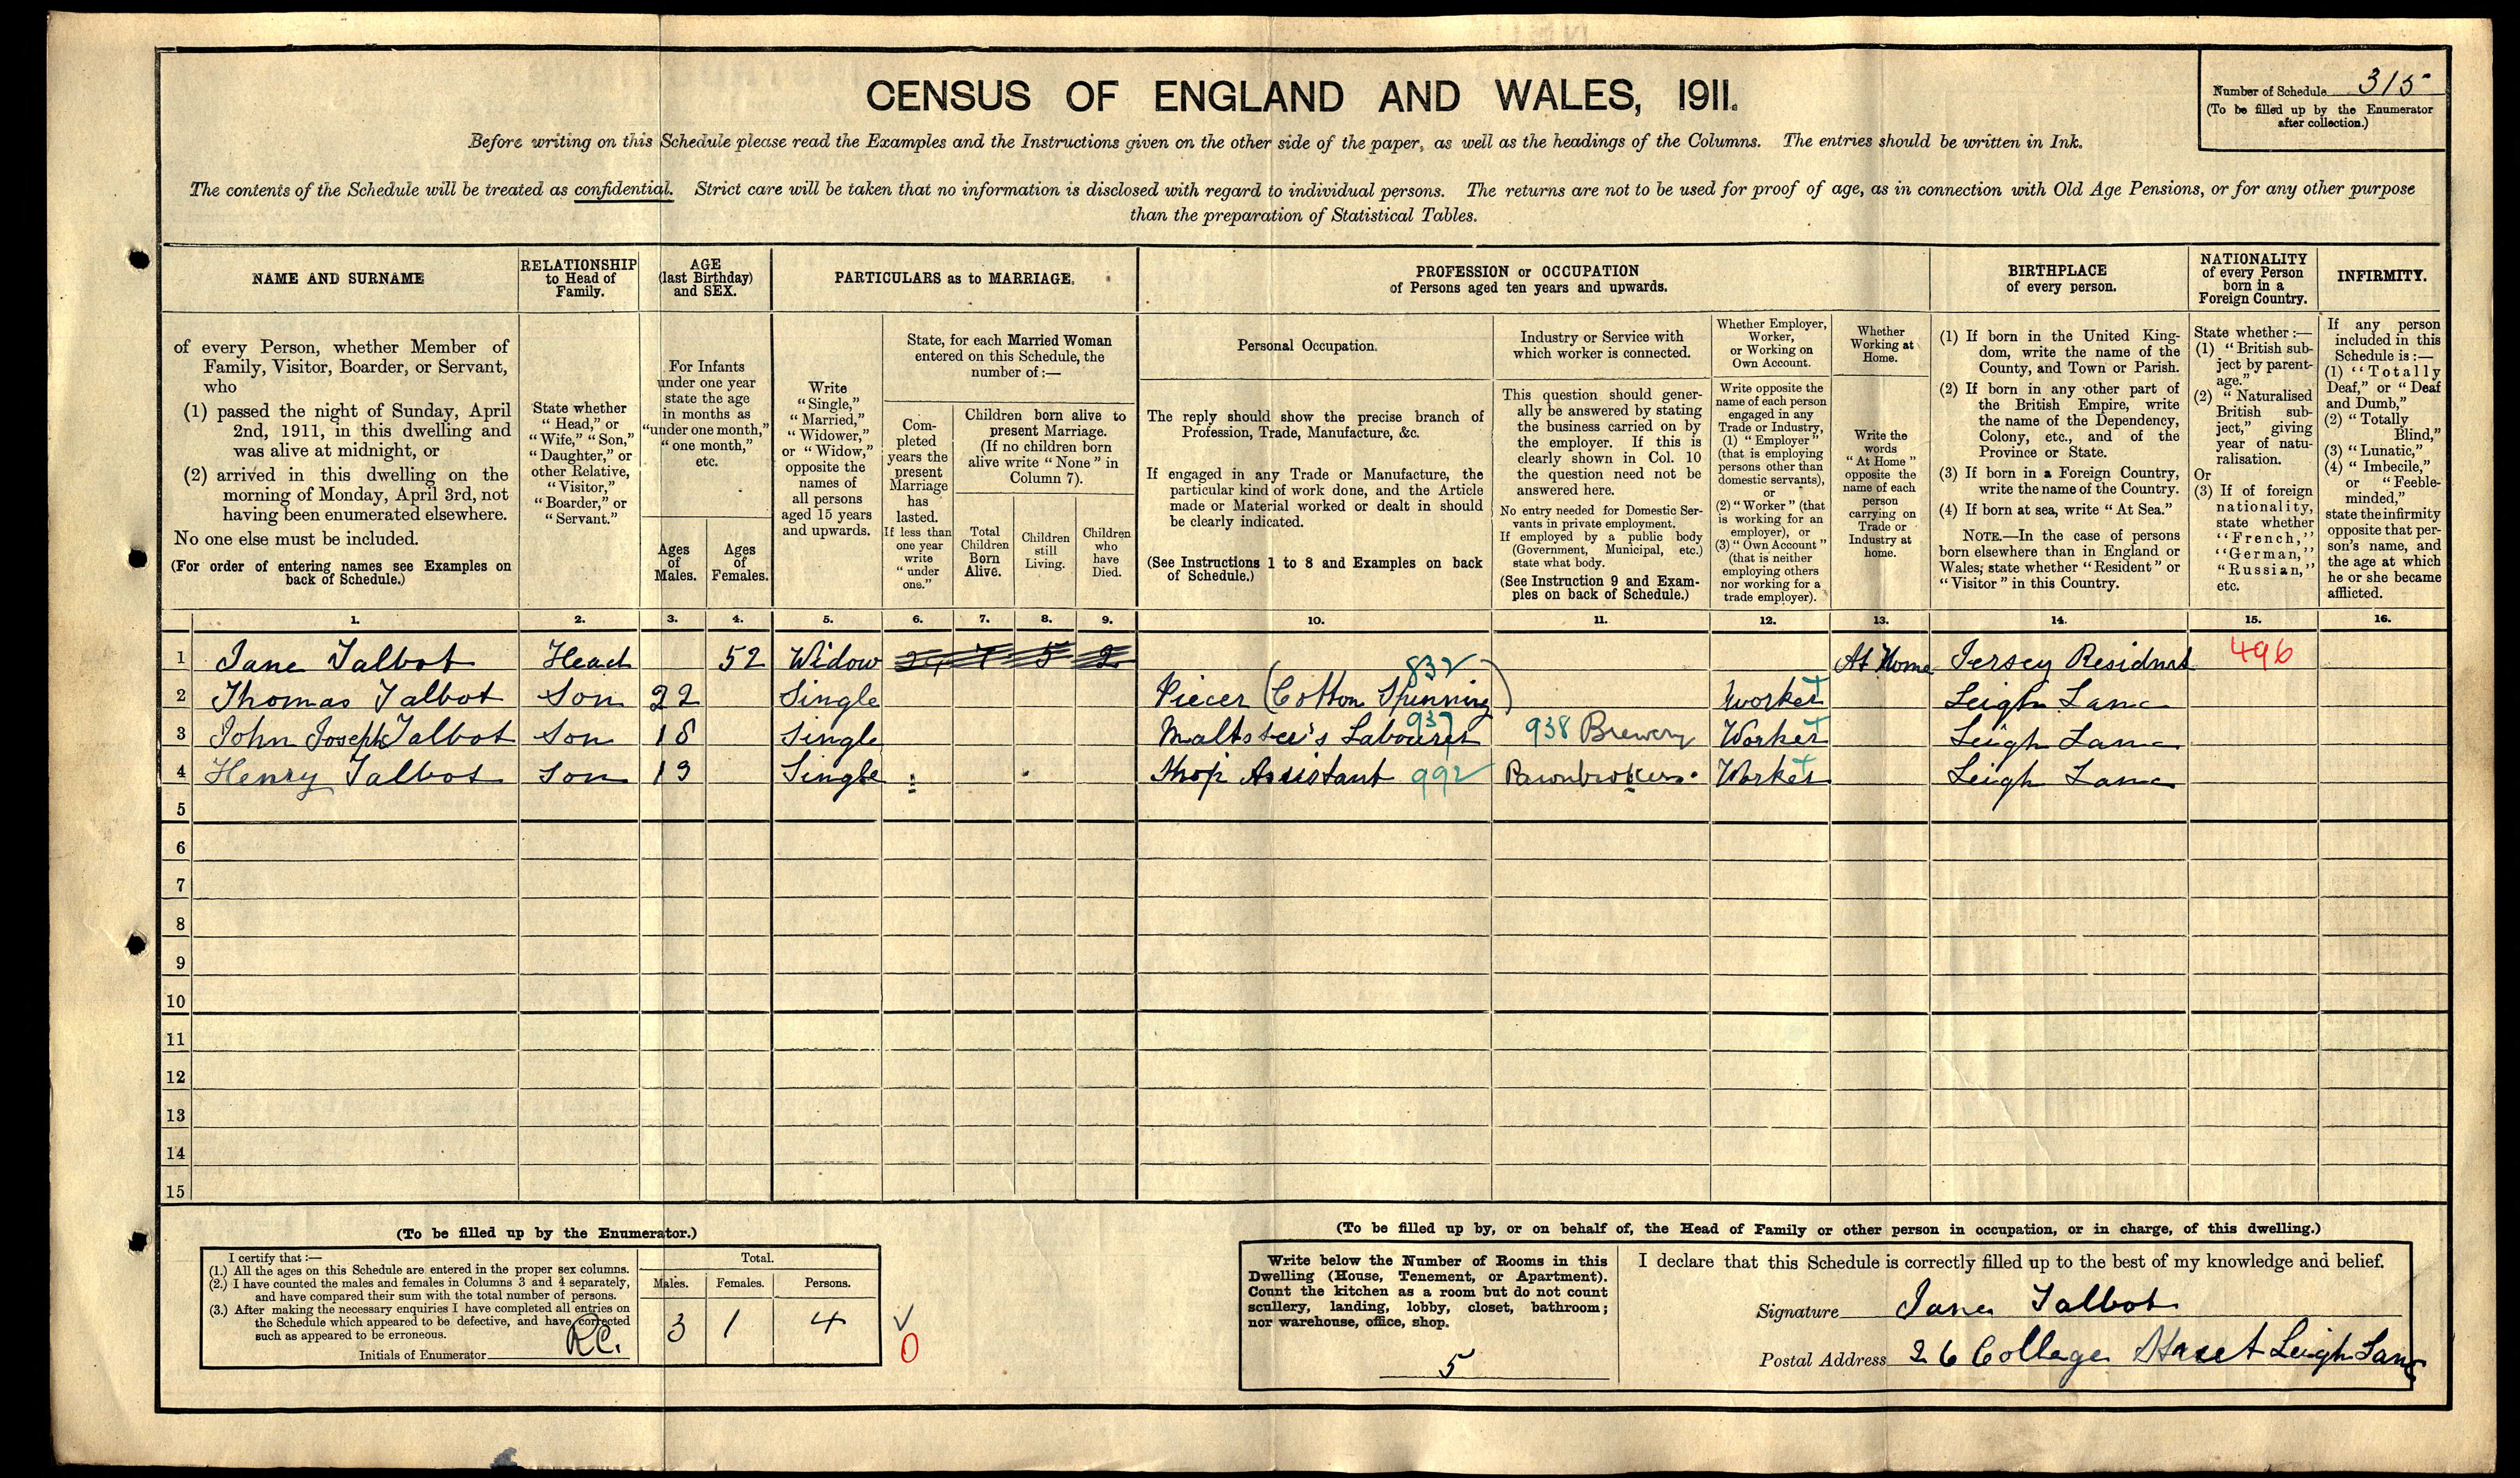 CENSUS OF ENGLAND AND WALES, 1911.
Number of Schedule 315
(To be filled up by the Enumerator
after collection.)
Before writing on this Schedule please read the Examples and the Instructions given on the other side of the paper, as well as the headings of the Columns. The entries should be written in Ink.
The contents of the Schedule will be treated as confidential. Strict care will be taken that no information is disclosed with regard to individual persons. The returns are not to be used for proof of age, as in connection with Old Age Pensions, or for any other purpose
than the preparation of Statistical Tables.
NAME AND SURNAME
of every Person, whether Member of
Family, Visitor, Boarder, or Servant,
who
(1) passed the night of Sunday, April
2nd, 1911, in this dwelling and
was alive at midnight, or
(2) arrived in this dwelling on the
morning of Monday, April 3rd, not
having been enumerated elsewhere.
No one else must be included.
(For order of entering names see Examples on
back of Schedule.)
RELATIONSHIP
to Head of
Family.
State whether
"Head," or
"Wife," "Son,"
"Daughter," or
other Relative,
"Visitor,"
"Boarder," or
"Servant."
AGE
(last Birthday)
and SEX.
For Infants
under one year
state the age
in months as
"under one month,"
"one month,"
etc.
Ages
of
Males.
Ages
of
Females.
PARTICULARS as to MARRIAGE.
Write
"Single,"
"Married,"
"Widower,"
or "Widow,"
opposite the
names of
all persons
aged 15 years
and upwards.
State, for each Married Woman
entered on this Schedule, the
number of:—
Com-
pleted
years the
present
Marriage
has
lasted.
If less than
one year
write
"under
one."
Children born alive to
present Marriage.
(If no children born
alive write "None" in
Column 7).
Total
Children
Born
Alive.
Children
still
Living.
Children
who
have
Died.
PROFESSION or OCCUPATION
of Persons aged ten years and upwards.
Personal Occupation.
The reply should show the precise branch of
Profession, Trade, Manufacture, &c.
If engaged in any Trade or Manufacture, the
particular kind of work done, and the Article
made or Material worked or dealt in should
be clearly indicated.
(See Instructions 1 to 8 and Examples on back
of Schedule.)
Industry or Service with
which worker is connected.
This question should gener-
ally be answered by stating
the business carried on by
the employer. If this is
clearly shown in Col. 10
the question need not be
answered here.
No entry needed for Domestic Ser-
vants in private employment.
If employed by a public body
(Government, Municipal, etc.)
state what body.
(See Instruction 9 and Exam-
ples on back of Schedule.)
Whether Employer,
Worker,
or Working on
Own Account.
Write opposite the
name of each person
engaged in any
Trade or Industry,
(1) "Employer"
(that is employing
persons other than
domestic servants),
or
(2) "Worker" (that
is working for an
employer), or
(3) "Own Account"
(that is neither
employing others
nor working for a
trade employer).
Whether
Working at
Home.
Write the
words
"At Home"
opposite the
name of each
person
carrying on
Trade or
Industry at
home.
BIRTHPLACE
of every person.
(1) If born in the United King-
dom, write the name of the
County, and Town or Parish.
(2) If born in any other part of
the British Empire, write
the name of the Dependency,
Colony, etc., and of the
Province or State.
(3) If born in a Foreign Country,
write the name of the Country.
(4) If born at sea, write "At Sea."
NOTE.—In the case of persons
born elsewhere than in England or
Wales, state whether "Resident" or
"Visitor" in this Country.
NATIONALITY
of every Person
born in a
Foreign Country.
State whether:—
(1) "British sub-
ject by parent-
age."
(2) "Naturalised
British sub-
ject," giving
year of natu-
ralisation.
Or
(3) If of foreign
nationality,
state whether
"French,"
"German,"
"Russian,"
etc.
INFIRMITY.
If any person
included in this
Schedule is:—
(1) "Totally
Deaf," or "Deaf
and Dumb,"
(2) "Totally
Blind,"
(3) "Lunatic,"
(4) "Imbecile,"
or "Feeble-
minded,"
state the infirmity
opposite that per-
son's name, and
the age at which
he or she became
afflicted.
1. 2. 3. 4. 5. 6. 7. 8. 9. 10. 11. 12. 13. 14. 15. 16.
1 Jane Talbot Head 52 Widow 7 5 2 At Home Jersey Resident 496
832
2 Thomas Talbot Son 22 Single Piecer (Cotton Spinning) Worker Leigh Lanc
937
3 John Joseph Talbot Son 18 Single Maltster's Labourer 938 Brewery Worker Leigh Lanc
4 Henry Talbot Son 19 Single Shop Assistant 992 Pawnbrokers. Worker Leigh Lanc
5
6
7
8
9
10
11
12
13
14
15
(To be filled up by the Enumerator.)
I certify that:—
(1.) All the ages on this Schedule are entered in the proper sex columns.
(2.) I have counted the males and females in Columns 3 and 4 separately,
and have compared their sum with the total number of persons.
(3.) After making the necessary enquiries I have completed all entries on
the Schedule which appeared to be defective, and have corrected
such as appeared to be erroneous.
Initials of Enumerator R.C.
Total.
Males. Females. Persons.
3 1 4
0
(To be filled up by, or on behalf of, the Head of Family or other person in occupation, or in charge, of this dwelling.)
Write below the Number of Rooms in this
Dwelling (House, Tenement, or Apartment).
Count the kitchen as a room but do not count
scullery, landing, lobby, closet, bathroom;
nor warehouse, office, shop.
5
I declare that this Schedule is correctly filled up to the best of my knowledge and belief.
Signature Jane Talbot
Postal Address 26 College Street Leigh Lanc